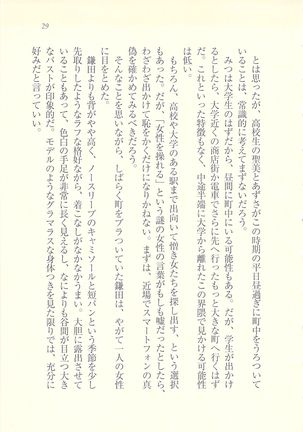 とは思ったが、高校生の聖美とあずさがこの時期の平日昼過ぎに町中をうろついて
いることは、常識的に考えてまずないだろう。
みつは大学生のはずだから、昼間に町中にいる可能性もある。だが、学生が出かけ
るとしたら、大学近くの商店街か電車でさらに先へ行ったもっと大きな町へ行くはず
だ。これといった特徴もなく、中途半端に大学から離れたこの界隈で見かける可能性
は低い。
もちろん、高校や大学のある駅まで出向いて憎き女たちを探し出す、という選択
もあった。だが、「女性を操れる」という謎の女性の言葉がもしも嘘だったとしたら、
わざわざ出かけて恥をかくだけになりかねない。まずは、近場でスマートフォンの真
偽を確かめてみるべきだろう。
そんなことを思いながら、しばらく町をブラついていた鎌田は、やがて一人の女性
に目をとめた。
鎌田よりも背がやや高く、ノースリーブのキャミソールと短パンという季節を少し
先取りしたようなラフな格好ながら、着こなしがなかなかうまい。大胆に露出させて
いることもあって、色白の手足が非常に長く見えるし、なによりも谷間が目立つ大き
なバストが印象的だ。モデルのようなグラマラスな身体つきを見た限りでは、充分に
好みだと言っていい。
29